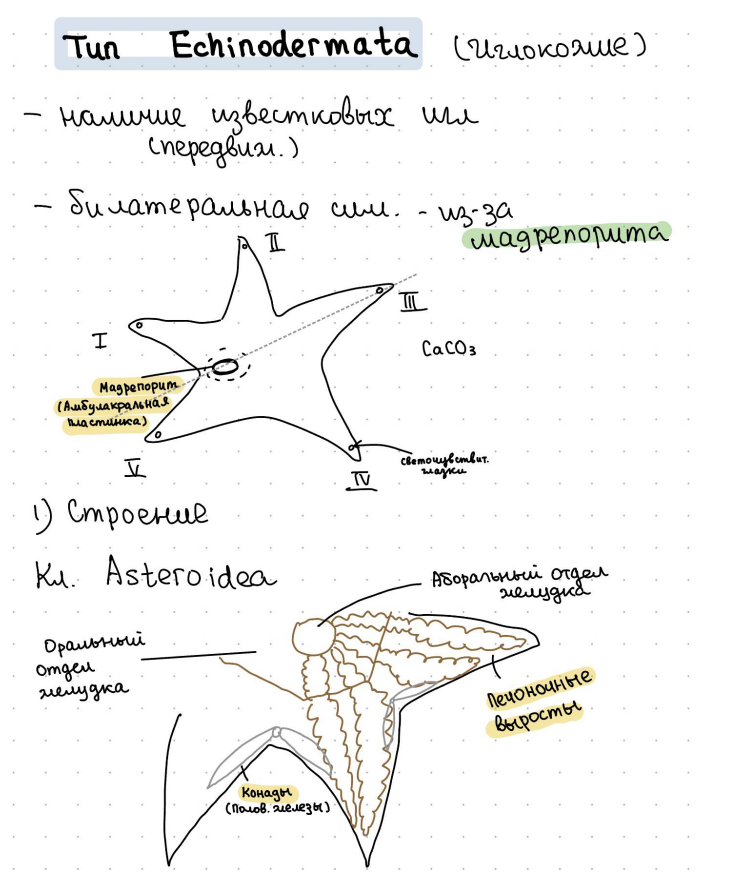 Тип Echinodermata (Иглокожие)
- наличие известковых игл
(передвиж.)
- билатеральная сим. - из-за
мадрепорита
II
III
I
CaCO3
Мадрепорит
(Амбулакральная
пластинка)
светочувствит.
глазки
V
IV
1) Строение
Кл. Asteroidea
Аборальный отдел
желудка
Оральный
отдел
желудка
Печоночные
выросты
Конады
(Полов. железы)